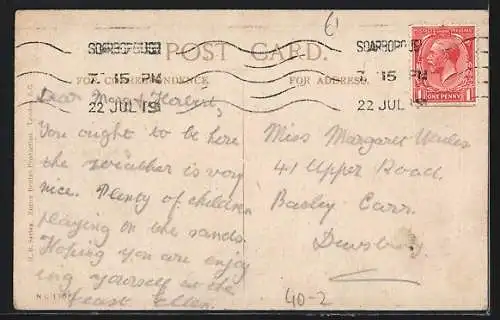 61
SCARBOROUGH
7. 15 PM
22 JUL 19
SCARBOROUGH
7. 15 PM
22 JUL 19
POST CARD.
FOR CORRESPONDENCE.
FOR ADDRESS.
ONE PENNY
1
Dear Mary & Herbert,
You ought to be here
the weather is very
nice. Plenty of children
playing on the sands.
Hoping you are enjoy
ing yourself at the
feast Ellen.
Miss Margaret
41 Upper Road.
Batley Carr.
Dewsbury.
40-2